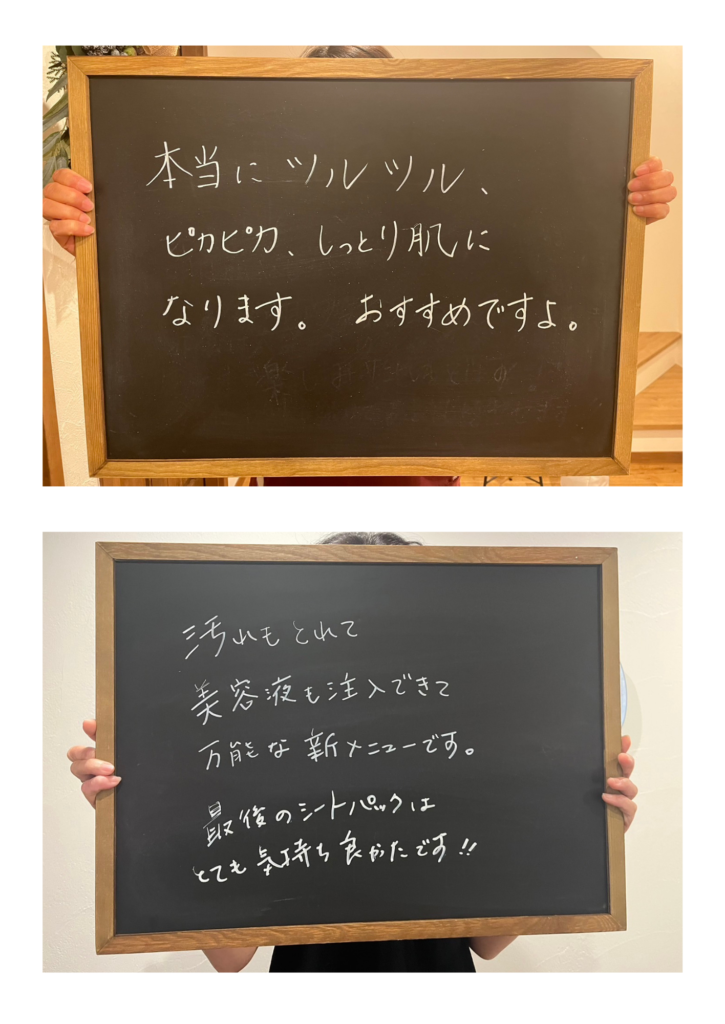 本当にツルツル、
ピカピカ、しっとり肌に
なります。 おすすめですよ。
汚れもとれて
美容液も注入できて
万能な新メニューです。
最後のシートパックは
とても気持ち良かたです!!